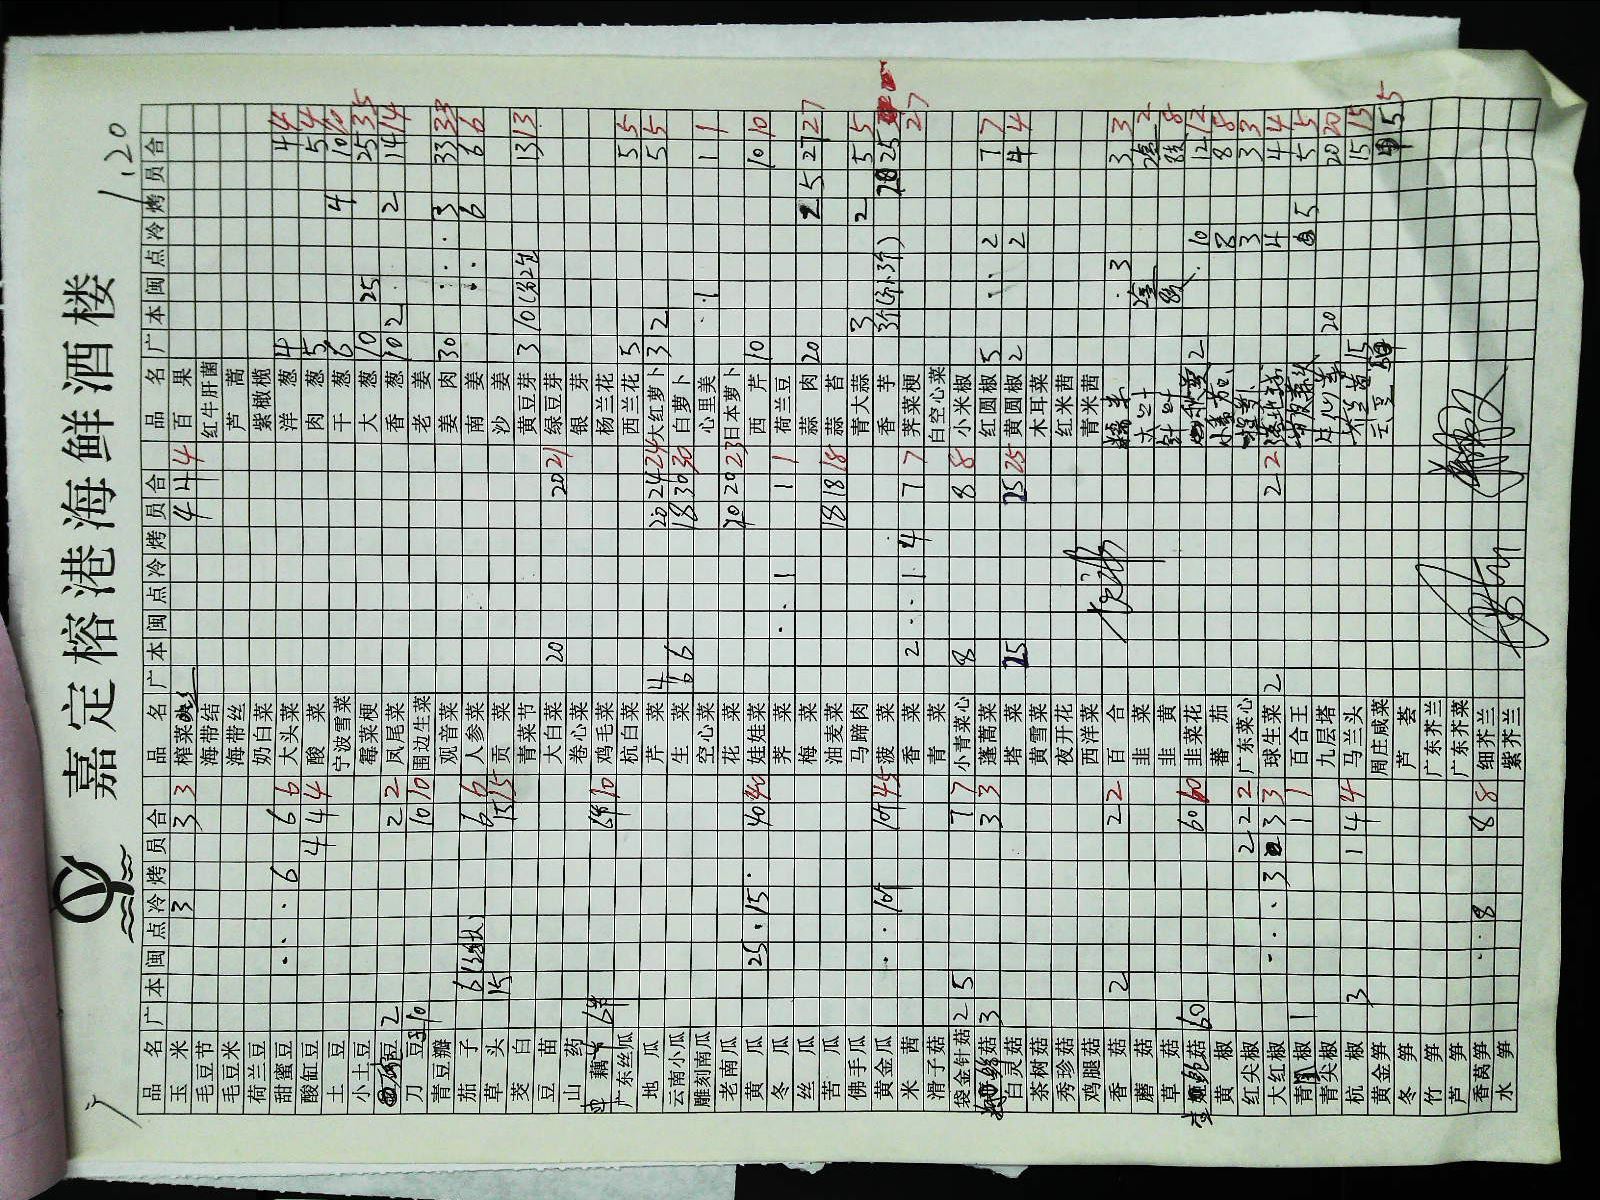 嘉定榕港海鲜酒楼 1.20
品名 广 本 闽 点 冷 烤 员 合 品名 广 本 闽 点 冷 烤 员 合 品名 广 本 闽 点 冷 烤 员 合
玉米 3 3 3 榨菜 4 4 4 百果
毛豆节 海带结 红牛肝菌
毛豆米 海带丝 芦蒿
荷兰豆 奶白菜 紫橄榄
甜蜜豆 6 6 6 大头菜 洋葱 4 4 4
酸缸豆 4 4 4 酸菜 肉葱 5 5 4
土豆 宁波雪菜 干葱 6 4 10 10
小土豆 霉菜梗 大葱 10 25 25 35
豆 2 2 2 凤尾菜 香葱 10 2 2 14 14
刀豆 10 10 10 围边生菜 老姜
青豆瓣 观音菜 姜肉 30 3 33 33
茄子 6 6 6 人参菜 南姜 6 6 6
草头 15 15 15 贡菜 沙姜
茭白 青菜节 黄豆芽 3 10 13 13
豆苗 大白菜 20 20 21 绿豆芽
山药 卷心菜 银芽
藕 10 鸡毛菜 杨兰花
广东丝瓜 杭白菜 西兰花 5 5 5
地瓜 芹菜 4 20 24 24 大红萝卜 3 2 5 5
云南小瓜 生菜 6 6 18 30 30 白萝卜
雕刻南瓜 空心菜 心里美 1 1 1
老南瓜 花菜 20 20 23 日本萝卜
黄瓜 25 15 40 40 娃娃菜 西芹 10 10 10
冬瓜 荠菜 1 1 1 荷兰豆
丝瓜 梅菜 蒜肉 20 2 5 27 27
苦瓜 油麦菜 18 18 18 蒜苔
佛手瓜 马蹄肉 青大蒜 3 2 5 5
黄金瓜 10个 10个 45 菠菜 香芋 25
米茜 香菜 2 1 4 7 7 荠菜梗 27
滑子菇 青菜 白空心菜
袋金针菇 2 5 7 7 小青菜心 8 8 8 小米椒
菇 3 3 3 蓬蒿菜 红圆椒 5 2 7 7
白灵菇 塔菜 25 25 25 黄圆椒 2 2 4 4
茶树菇 黄雪菜 木耳菜
秀珍菇 夜开花 红米茜
鸡腿菇 西洋菜 青米茜
香菇 2 2 2 百合 3 3 3
蘑菇 韭菜
草菇 韭黄
菇 60 60 60 韭菜花 2 10 12 12
黄椒 蕃茄 8 8 8
红尖椒 2 2 2 广东菜心 3 3 3
大红椒 3 3 3 球生菜 2 2 2 4 4 4
青椒 1 1 1 百合王 5 5 5
青尖椒 九层塔 20 20 20
杭椒 3 1 4 4 马兰头 15 15 15
黄金笋 周庄咸菜 5 5
冬笋 芦荟
竹笋 广东芥兰
芦笋 广东芥菜
香莴笋 8 8 8 细芥兰
水笋 紫芥兰